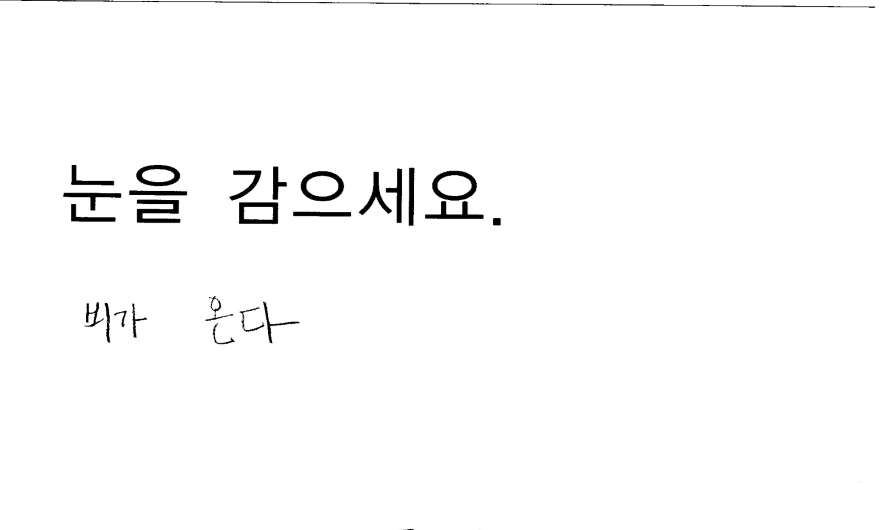 눈을 감으세요.
비가 온다